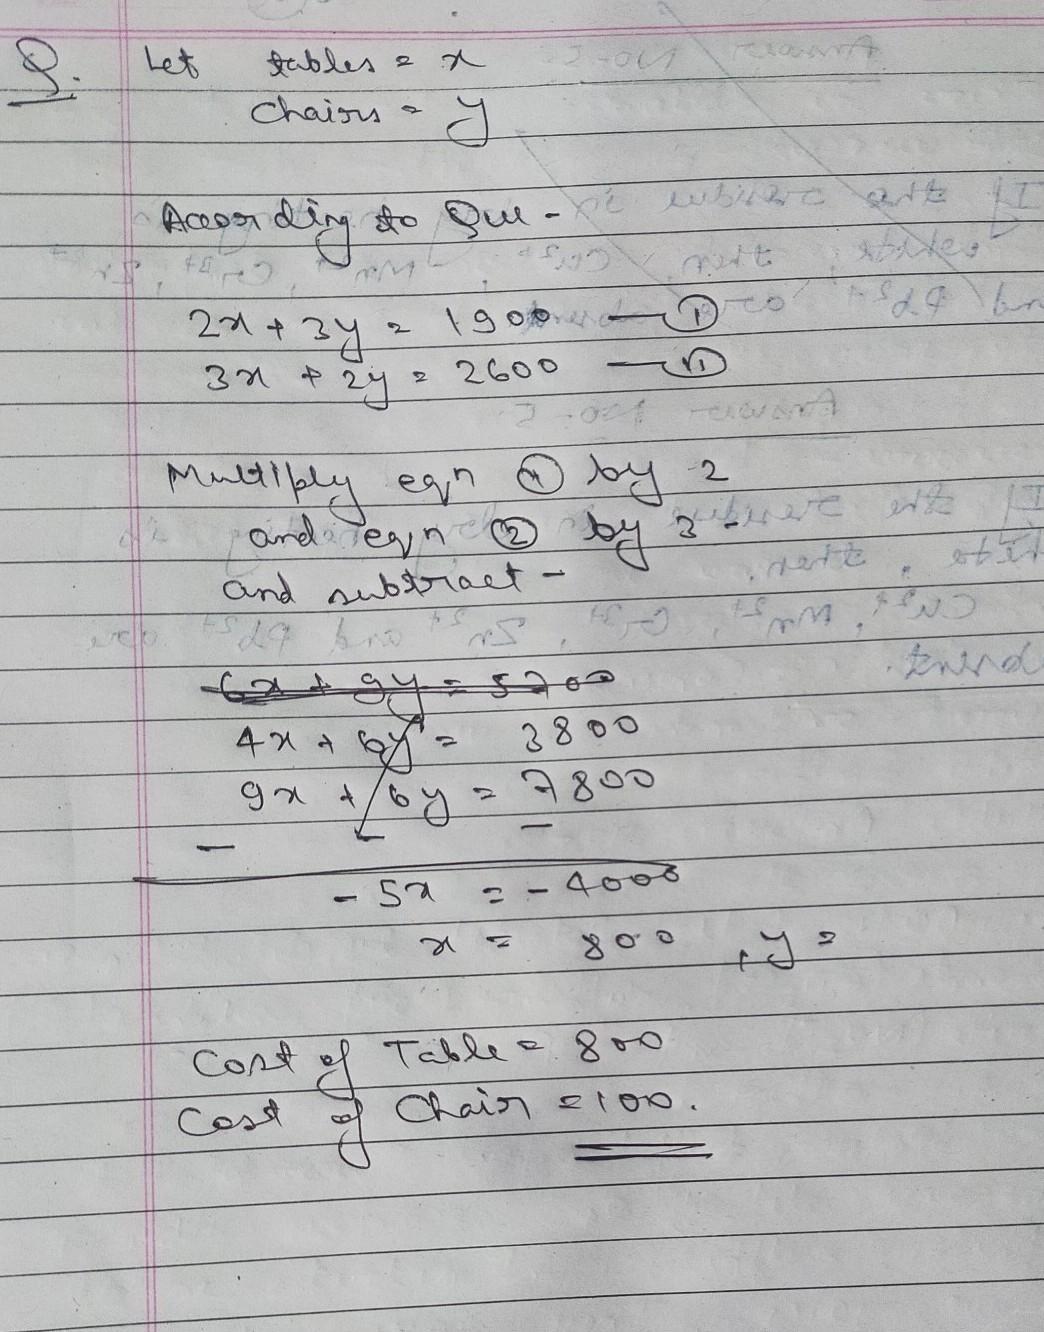 Q. Let tables = x
Chairs = y
According to Que -
2x + 3y = 1900 — ①
3x + 2y = 2600 — ⑪
Multiply eqn ① by 2
and eqn ② by 3 -
and subtract -
6x + 9y = 5700
4x + 6y = 3800
9x + 6y = 7800
- -
- 5x = - 4000
x = 800 , y =
Cost of Table = 800
Cost of Chair = 100.